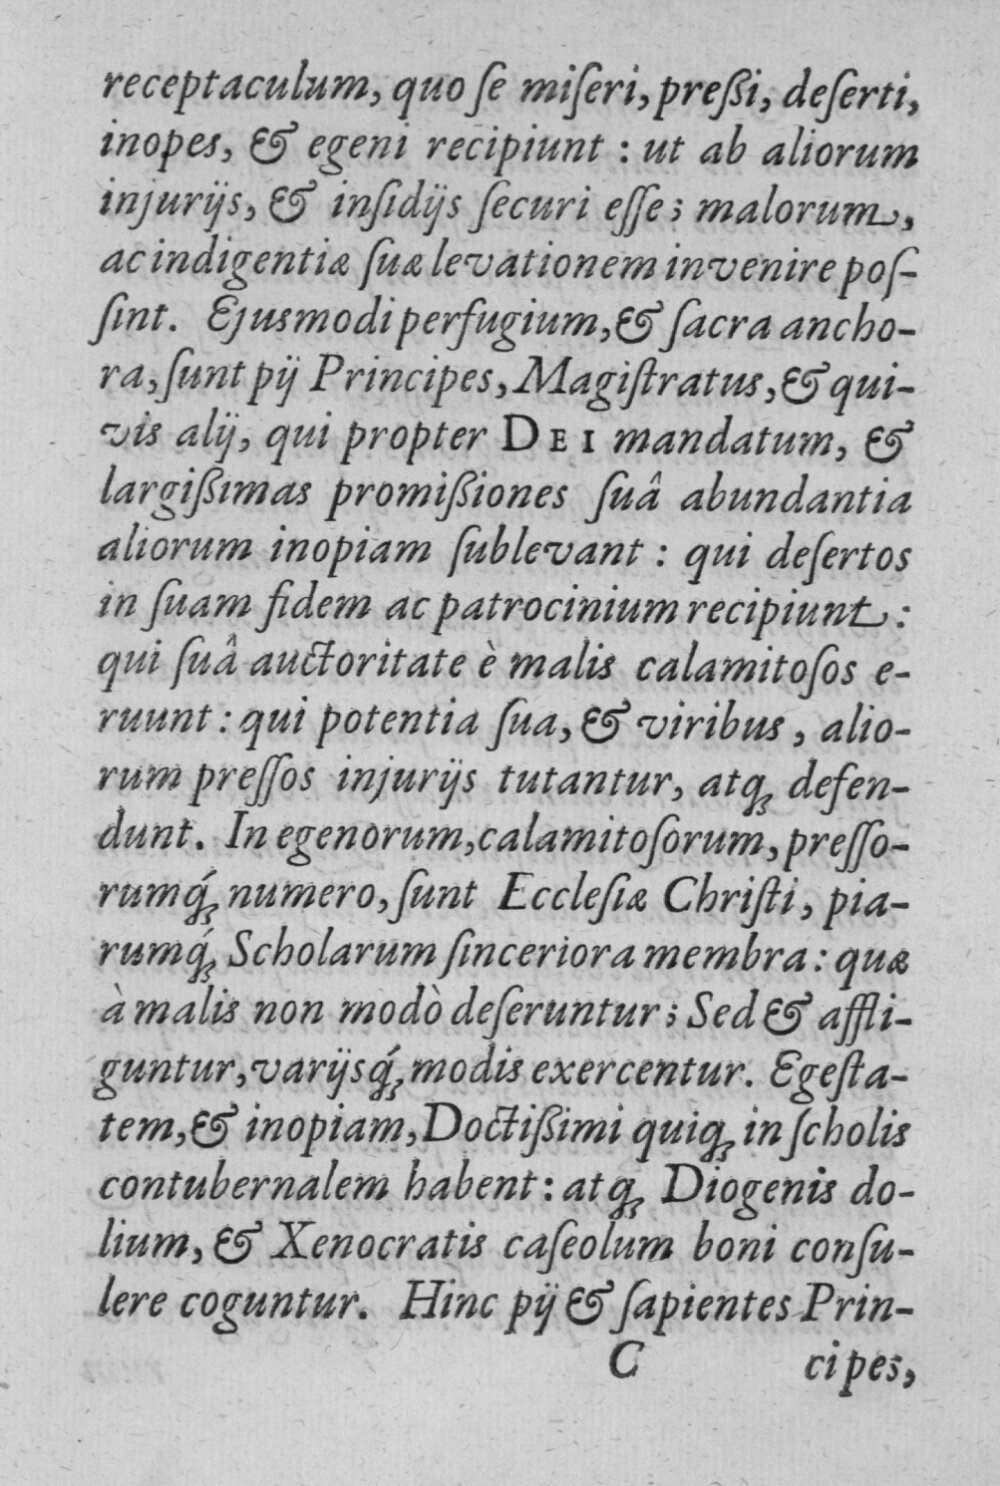 receptaculum, quo ſe miſeri, preßi, deſerti,
inopes, & egeni recipiunt : ut ab aliorum
injurijs, & inſidijs ſecuri eſſe ; malorum,
ac indigentiæ ſuæ levationem invenire poſ-
ſint. Ejusmodi perfugium, & ſacra ancho-
ra, ſunt pij Principes, Magiſtratus, & qui-
vis alij, qui propter DEI mandatum, &
largißimas promißiones ſuâ abundantia
aliorum inopiam ſublevant : qui deſertos
in ſuam fidem ac patrocinium recipiunt :
qui ſuâ auctoritate è malis calamitoſos e-
ruunt : qui potentia ſua, & viribus, alio-
rum preſſos injurijs tutantur, atq́; defen-
dunt. In egenorum, calamitoſorum, preſſo-
rumq́; numero, ſunt Eccleſiæ Chriſti, pia-
rumq́; Scholarum ſinceriora membra : quæ
à malis non modò deſeruntur ; Sed & affli-
guntur, varijsq́; modis exercentur. Egeſta-
tem, & inopiam, Doctißimi quiq; in ſcholis
contubernalem habent : atq; Diogenis do-
lium, & Xenocratis caſeolum boni conſu-
lere coguntur. Hinc pij & ſapientes Prin-
C cipes,